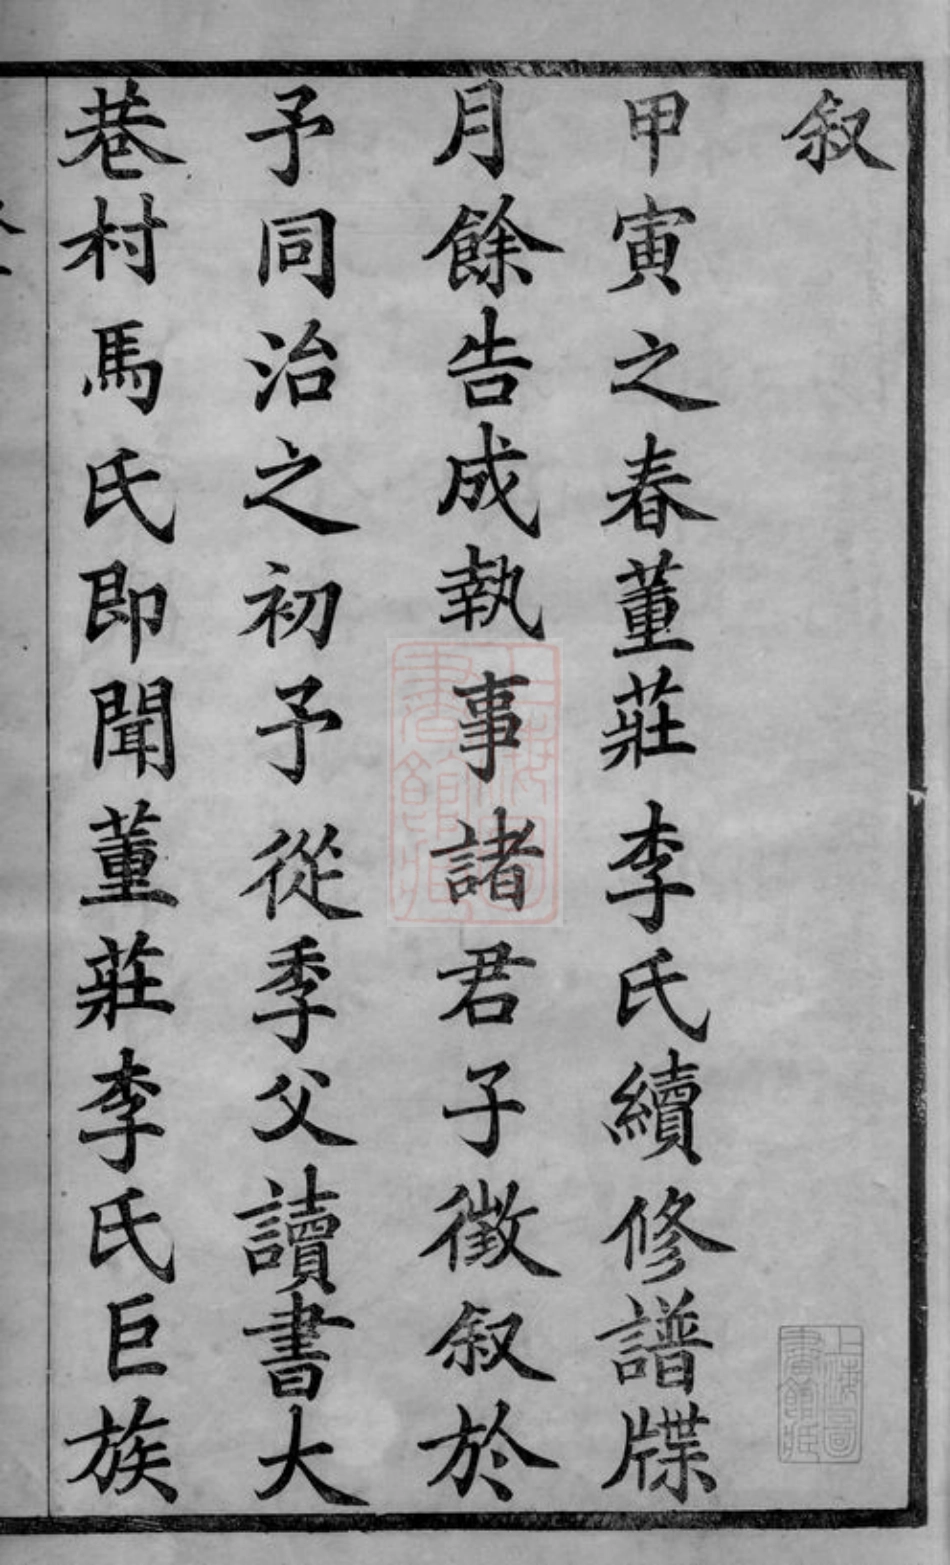 叙
甲寅之春董莊李氏續修譜牒
月餘告成執事諸君子徵叙於
予同治之初予從季父讀書大
巷村馬氏即聞董莊李氏巨族
上海圖書館藏
上海圖書館藏